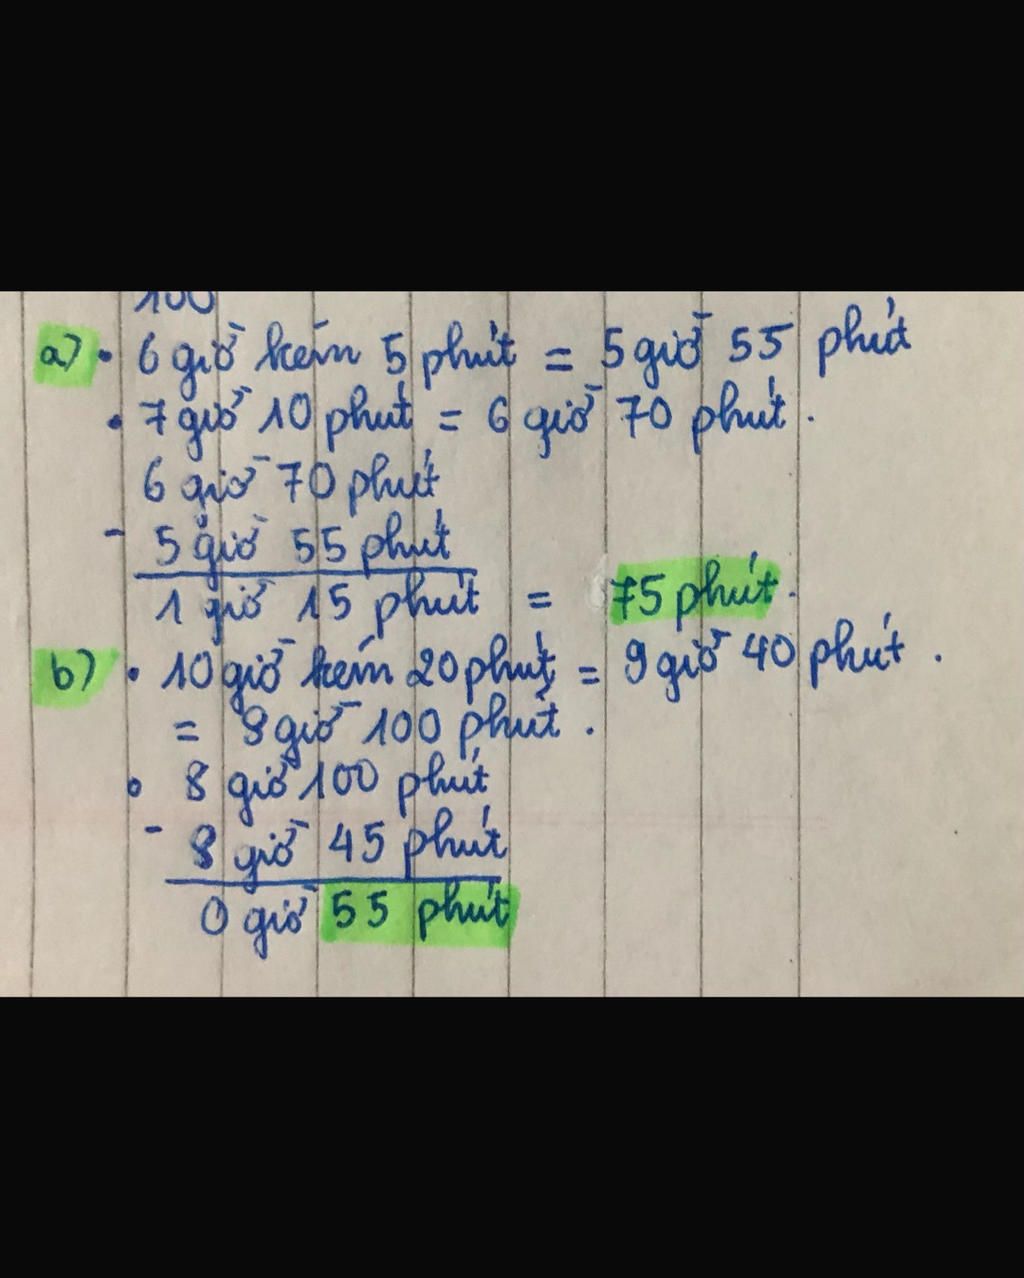 100
a) • 6 giờ kém 5 phút = 5 giờ 55 phút
• 7 giờ 10 phút = 6 giờ 70 phút.
6 giờ 70 phút
- 5 giờ 55 phút
1 giờ 15 phút = 75 phút.
b) • 10 giờ kém 20 phút = 9 giờ 40 phút.
= 8 giờ 100 phút.
• 8 giờ 100 phút
- 8 giờ 45 phút
0 giờ 55 phút